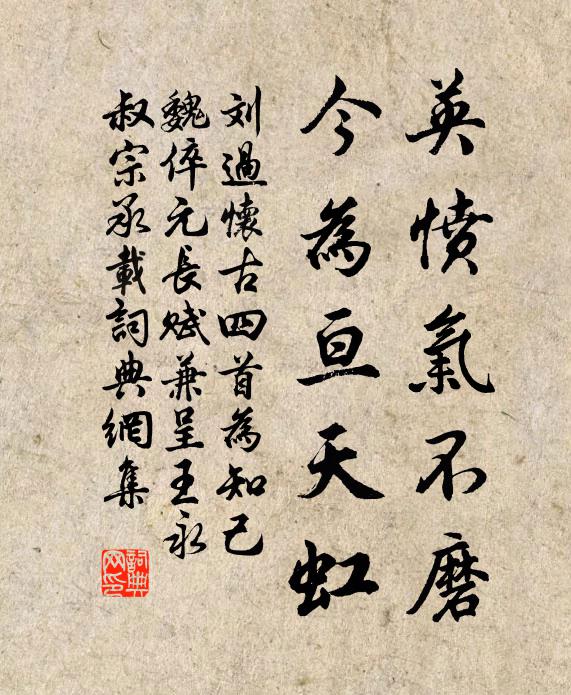 英憤氣不磨
今為亘天虹
刘過懷古四首為知己
魏倅元長賦兼呈王永
叔宗丞載詞典網集
詞典网印